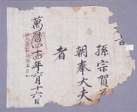 孫宗
朝奉大夫
者
萬曆四十四年六月十六日